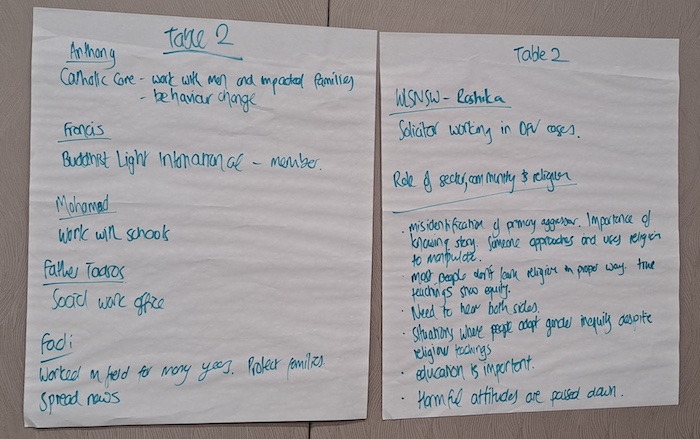 Table 2
Anthony
Catholic Care - work with men and impacted families
- behaviour change
Francis
Buddhist Light International - member.
Mohamad
Work with schools
Father Tadros
Social work office
Fadi
Worked in field for many years. Protect families.
Spread news
Table 2
WLSNSW - Rashika
Solicitor working in DFV cases.
Role of sector, community & religion
· misidentification of primary aggressor. Importance of
knowing story. Someone approaches and uses religion
to manipulate.
· most people don't learn religion in proper way. true
teachings show equity.
· Need to hear both sides.
· Situations where people adopt gender inequity despite
religious teachings
· education is important.
· Harmful attitudes are passed down.